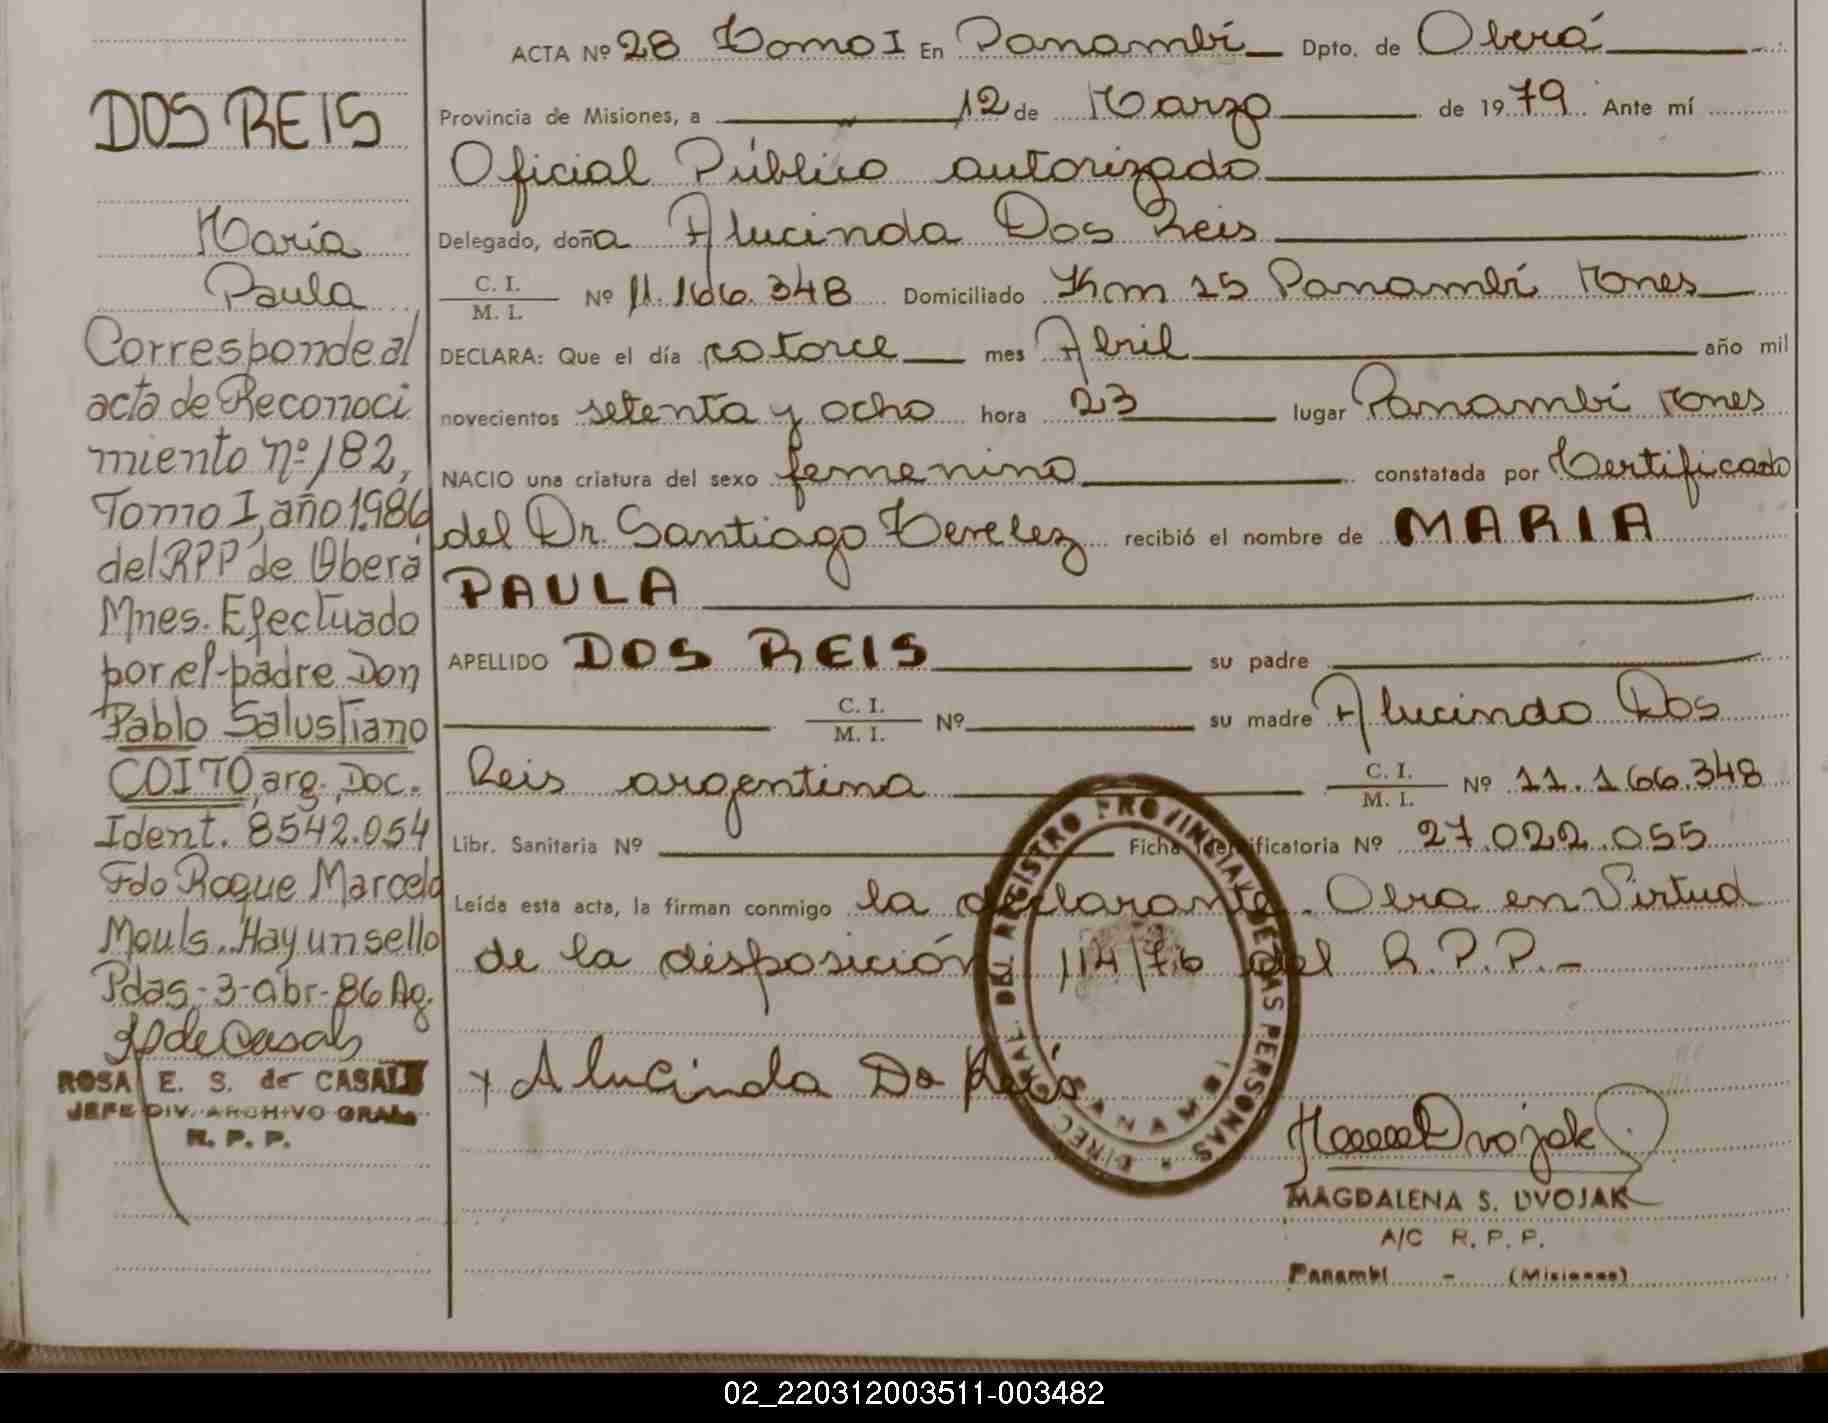 DOS REIS
María
Paula
Corresponde al
acta de Reconoci
miento nº 182,
Tomo I, año 1986
del RPP de Oberá
Mnes. Efectuado
por el padre Don
Pablo Salustiano
COITO, arg., Doc.
Ident. 8542.054
Fdo Roque Marcelo
Mouls. Hay un sello
Pdas. 3-abr-86 Ag.
ROSA E. S. de CASALS
JEFE DIV. ARCHIVO GRAL.
R. P. P.
ACTA Nº 28 Tomo I En Panambí Dpto. de Oberá
Provincia de Misiones, a 12 de Marzo de 1979 Ante mí
Oficial Público autorizado
Delegado, doña Alucinda Dos Reis
C. I.
M. I. Nº 11.166.348 Domiciliado Km 15 Panambí Mnes
DECLARA: Que el día catorce mes Abril año mil
novecientos setenta y ocho hora 23 lugar Panambí Mnes
NACIO una criatura del sexo femenino constatada por Certificado
del Dr. Santiago recibió el nombre de MARIA
PAULA
APELLIDO DOS REIS su padre
C. I.
M. I. Nº su madre Alucinda Dos
Reis argentina C. I.
M. I. Nº 11.166.348
Libr. Sanitaria Nº Ficha Identificatoria Nº 27.022.055
Leída esta acta, la firman conmigo la declarante. Obra en Virtud
de la disposición 114/76 del R.P.P.-
x Alucinda Do Reis
DIREC. GRAL. DEL REGISTRO PROVINCIAL DE LAS PERSONAS
PANAMBI
MAGDALENA S. DVOJAK
A/C R. P. P.
Panambí - (Misiones)
02_220312003511-003482